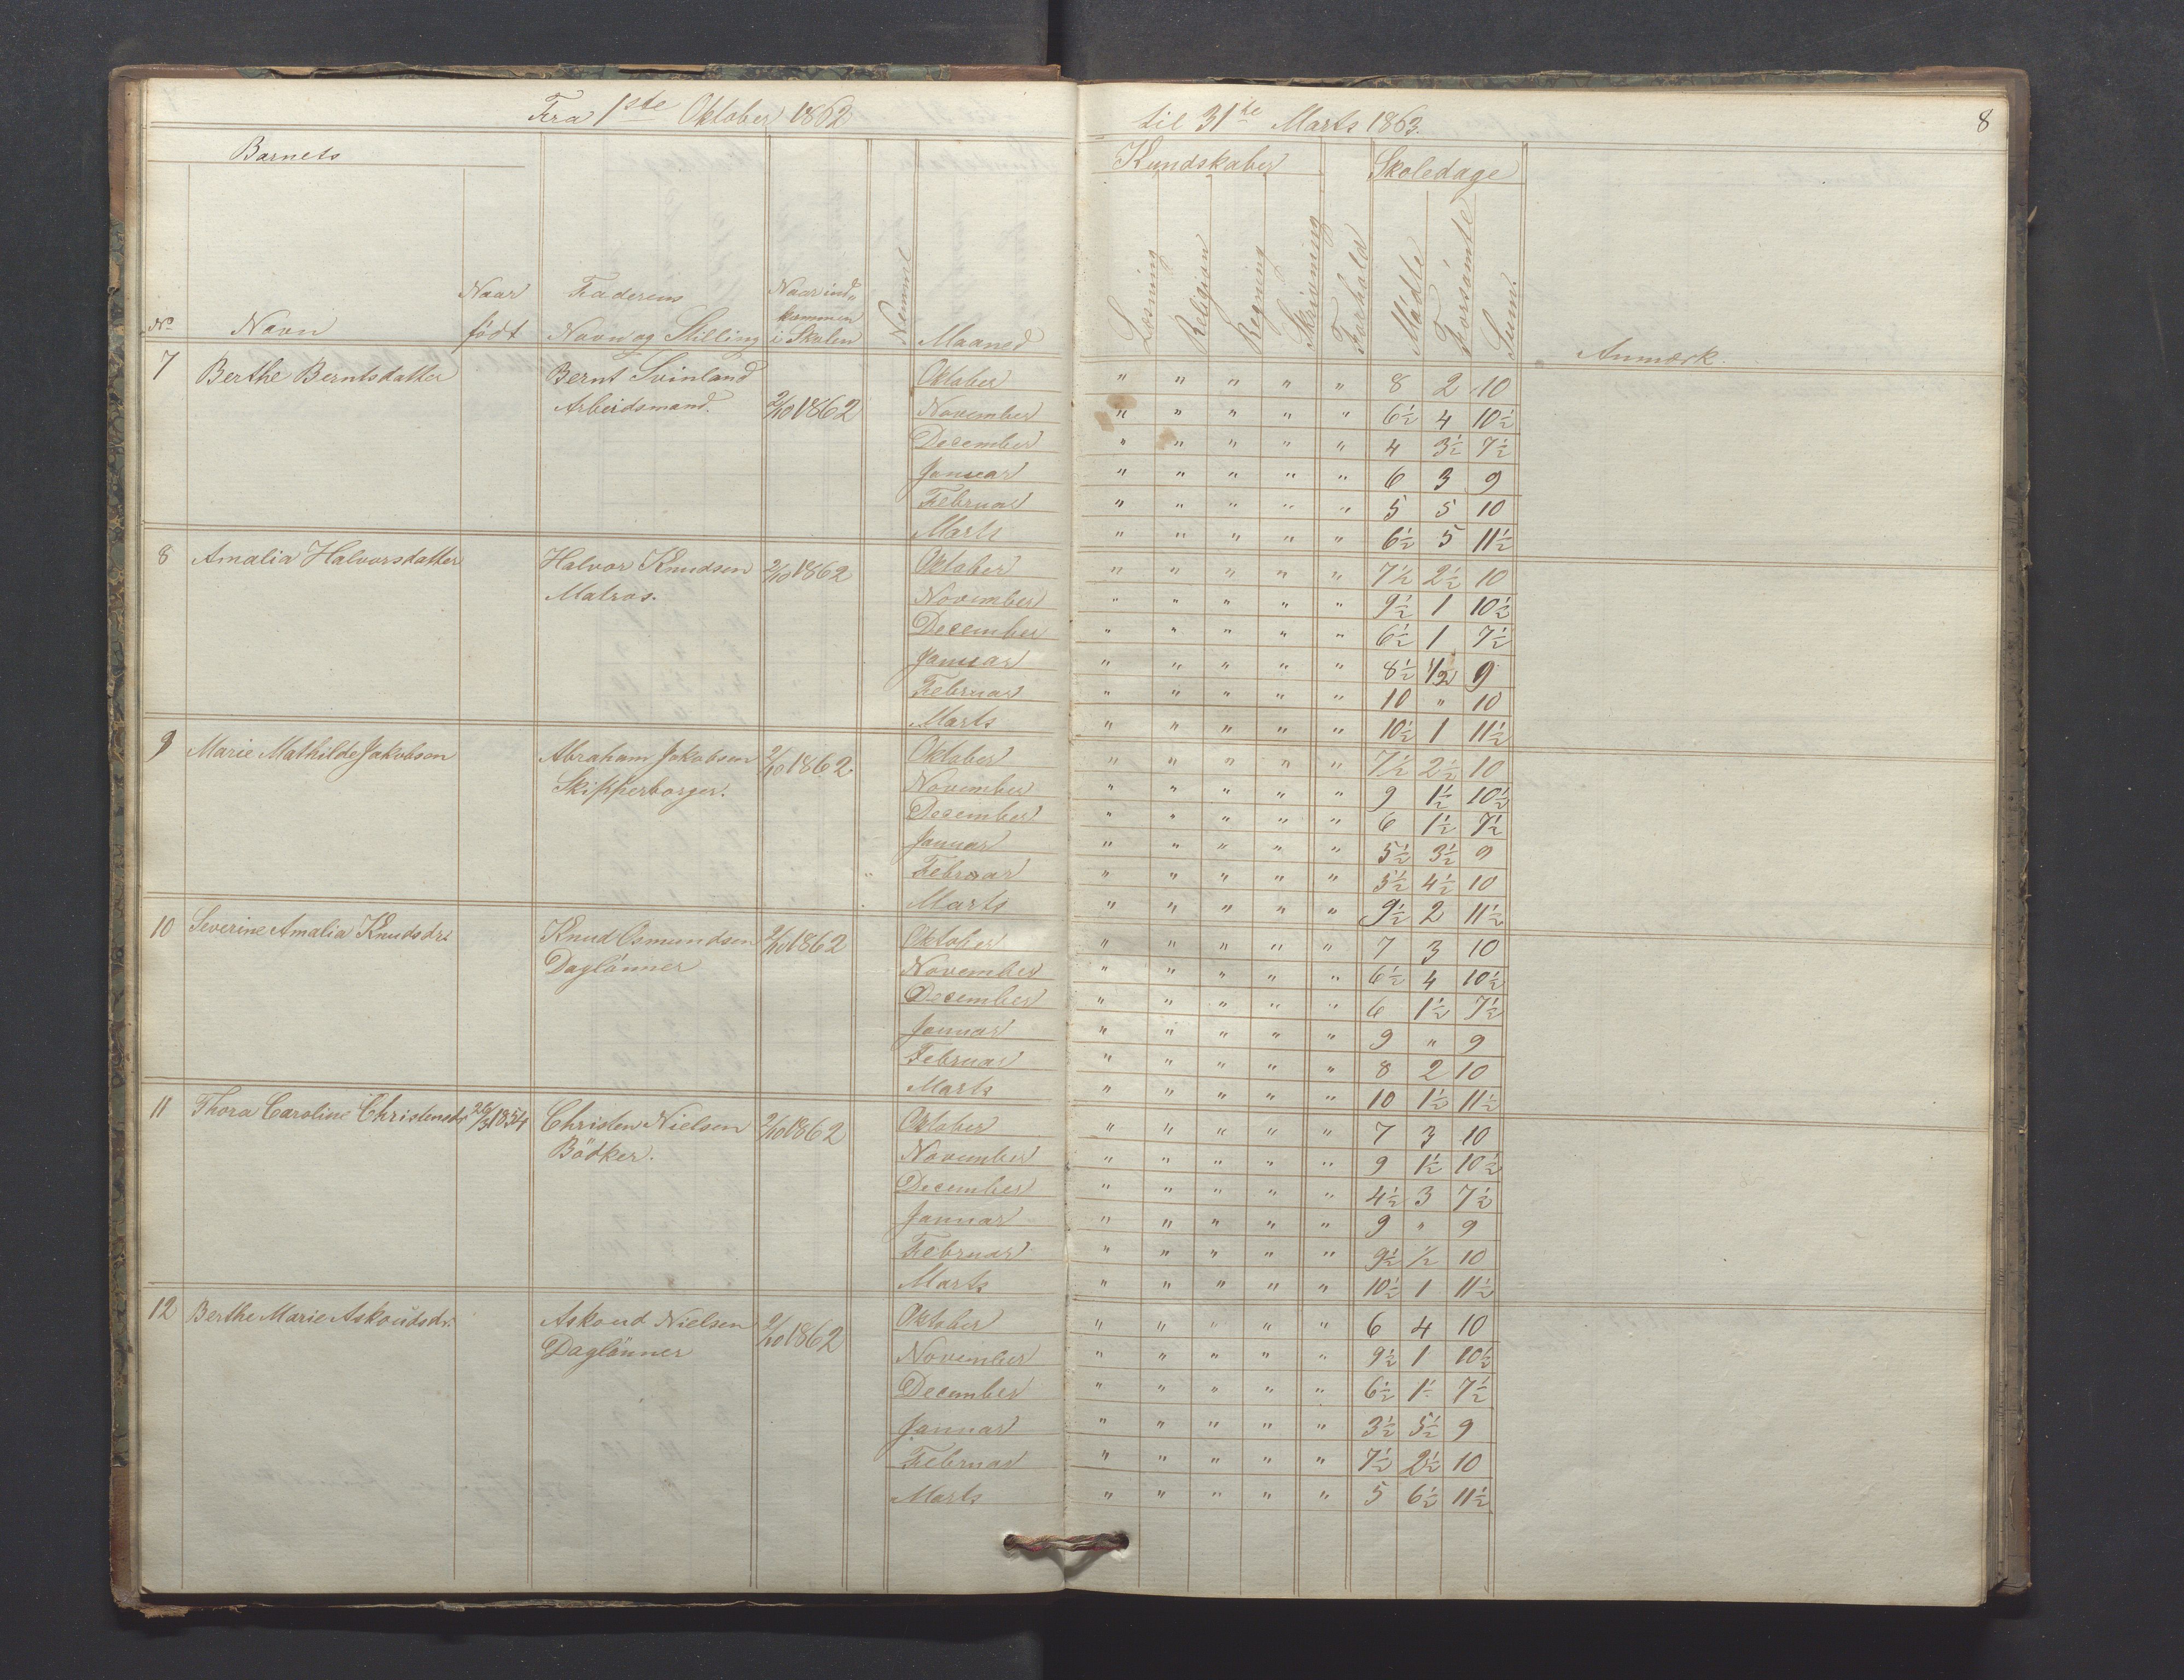 Fra 1ste Oktober 1862 til 31te Marts 1863. 8
Barnets Kundskaber Skoledage
No Navn Naar født Faderens Navn og Stilling Naar ind- kommen i Skolen Nemme Maaned Læsning Religion Regning Skrivning Forhold Mødte Forsømte Sum. Anmærk.
7 Berthe Berntsdatter Bernt Svinland Oktober " " " " " 8 2 10
Arbeidsmand. 2/10 1862 November " " " " " 6½ 4 10½
December " " " " " 4 3½ 7½
Januar " " " " " 6 3 9
Februar " " " " " 5 5 10
Marts " " " " " 6½ 5 11½
8 Amalia Halvorsdatter Halvor Knudsen 2/10 1862 Oktober " " " " " 7½ 2½ 10
Matros. November " " " " " 9½ 1 10½
December " " " " " 6½ 1 7½
Januar " " " " " 8½ 1/2 9
Februar " " " " " 10 " 10
Marts " " " " " 10½ 1 11½
9 Marie Mathilde Jakobsen Abraham Jakobsen 2/10 1862. Oktober " " " " " 7½ 2½ 10
Skipperborger. November " " " " " 9 1½ 10½
December " " " " " 6 1½ 7½
Januar " " " " " 5½ 3½ 9
Februar " " " " " 5½ 4½ 10
Marts " " " " " 9½ 2 11½
10 Severine Amalia Knudsdr: Knud Osmundsen 2/10 1862 Oktober " " " " " 7 3 10
Daglönner November " " " " " 6½ 4 10½
December " " " " " 6 1½ 7½
Januar " " " " " 9 " 9
Februar " " " " " 8 2 10
Marts " " " " " 10 1½ 11½
11 Thora Caroline Christensdr 1854 Christen Nielsen 2/10 1862 Oktober " " " " " 7 3 10
Bödker. November " " " " " 9 1½ 10½
December " " " " " 4½ 3 7½
Januar " " " " " 9 " 9
Februar " " " " " 9½ ½ 10
Marts " " " " " 10½ 1 11½
12 Berthe Marie Askoudsdr: Askoud Nielsen 2/10 1862 Oktober " " " " " 6 4 10
Daglönner November " " " " " 9½ 1 10½
December " " " " " 6½ 1 7½
Januar " " " " " 3½ 5½ 9
Februar " " " " " 7½ 2½ 10
Marts " " " " " 5 6½ 11½